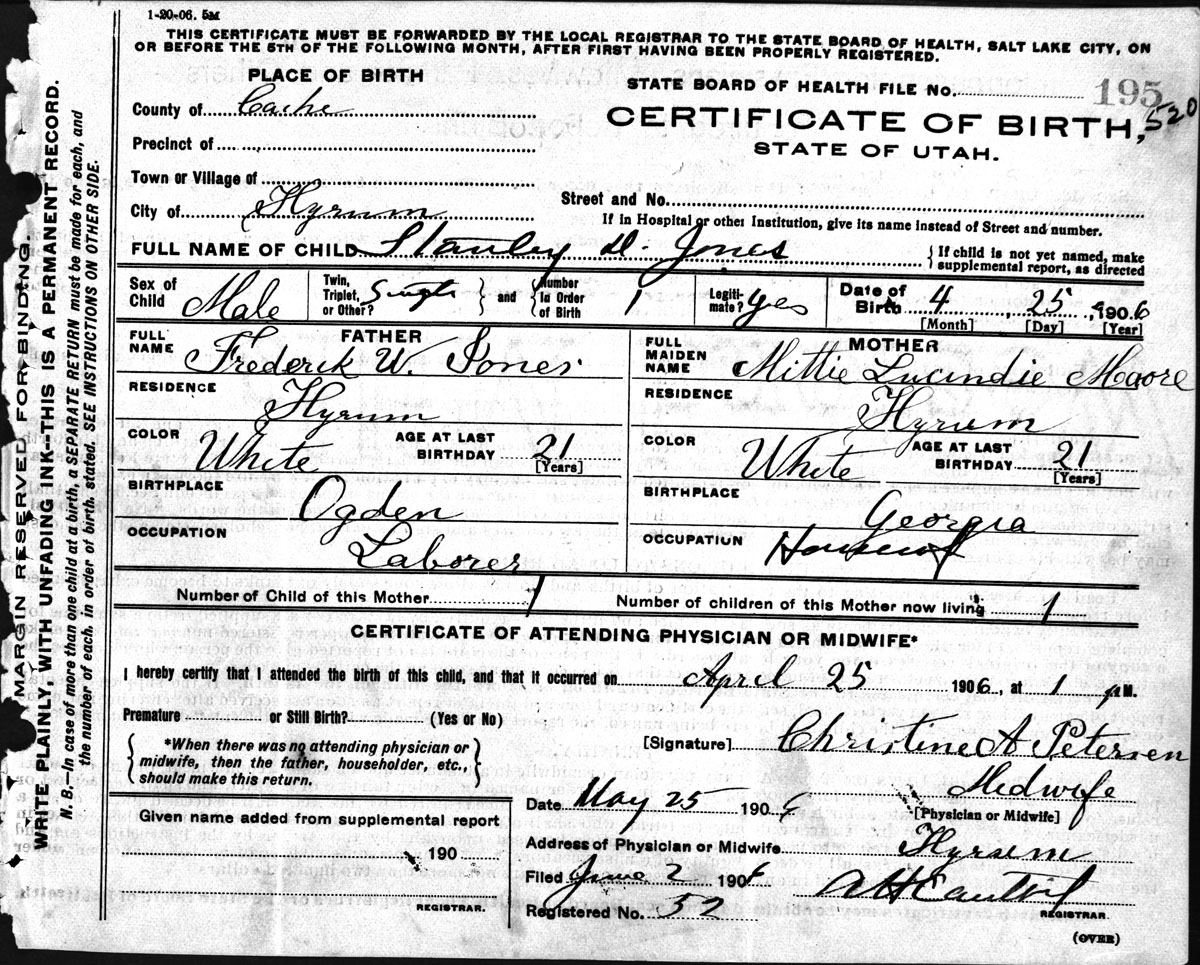 1-20-06. 5M
THIS CERTIFICATE MUST BE FORWARDED BY THE LOCAL REGISTRAR TO THE STATE BOARD OF HEALTH, SALT LAKE CITY, ON
OR BEFORE THE 5TH OF THE FOLLOWING MONTH, AFTER FIRST HAVING BEEN PROPERLY REGISTERED.
PLACE OF BIRTH
STATE BOARD OF HEALTH FILE No. 195
County of Cache
CERTIFICATE OF BIRTH, 520
Precinct of
STATE OF UTAH.
Town or Village of
Street and No.
City of Hyrum
If in Hospital or other Institution, give its name instead of Street and number.
FULL NAME OF CHILD Stanley D. Jones
{If child is not yet named, make
supplemental report, as directed
Sex of Child Male
Twin, Triplet, or Other? Single } and { Number in Order of Birth 1
Legiti-mate? yes
Date of Birth 4 25, 1906
[Month] [Day] [Year]
FATHER
FULL NAME Frederik W. Jones
RESIDENCE Hyrum
COLOR White
AGE AT LAST BIRTHDAY 21
[Years]
BIRTHPLACE Ogden
OCCUPATION Laborer
MOTHER
FULL MAIDEN NAME Mittie Lucindie Moore
RESIDENCE Hyrum
COLOR White
AGE AT LAST BIRTHDAY 21
[Years]
BIRTHPLACE Georgia
OCCUPATION
Number of Child of this Mother 1
Number of children of this Mother now living 1
CERTIFICATE OF ATTENDING PHYSICIAN OR MIDWIFE*
I hereby certify that I attended the birth of this child, and that it occurred on April 25 1906, at 1 P.M.
Premature or Still Birth? (Yes or No)
{*When there was no attending physician or
midwife, then the father, householder, etc.,
should make this return.}
[Signature] Christine A Petersen
Midwife
Date May 25 190
[Physician or Midwife]
Given name added from supplemental report
190
REGISTRAR.
Address of Physician or Midwife Hyrum
Filed June 2 190
Registered No. 52
REGISTRAR.
(OVER)
MARGIN RESERVED FOR BINDING.
WRITE PLAINLY, WITH UNFADING INK—THIS IS A PERMANENT RECORD.
N. B.—In case of more than one child at a birth, a SEPARATE RETURN must be made for each, and
the number of each, in order of birth, stated. SEE INSTRUCTIONS ON OTHER SIDE.